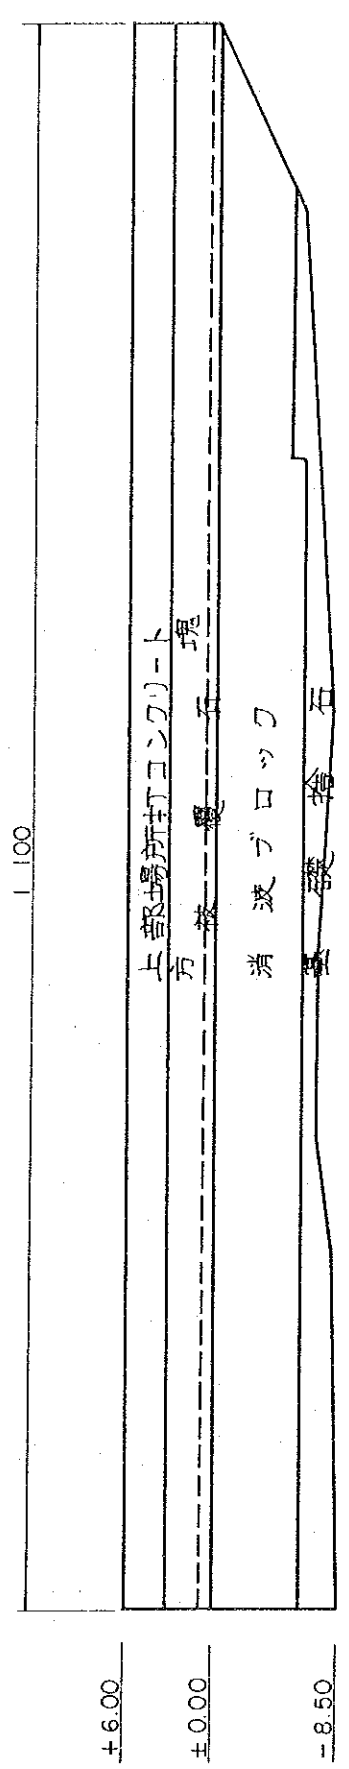 1,100
上部場所打コンクリート
方塊
被覆石
消波ブロック
基礎捨石
+6.00
±0.00
-8.50